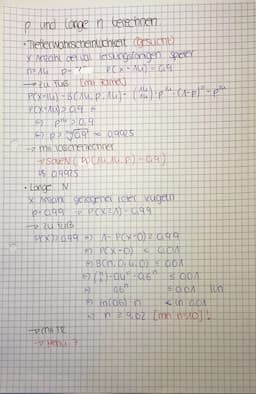 p und Länge n berechnen
• Trefferwahrscheinlichkeit (gesucht)
X Anzahl der voll leistungsfähigen Spieler
n=14 p=? P(X=14)=0,9
→ zu Fuß [mit Formel]
P(X=14)=B(14, p, 14)= (14 14)·p^14·(1-p)^0 = p^14
P(X=14) ≥ 0,9
⇔ p^14 ≥ 0,9
⇔ p ≥ ¹⁴√0,9 ≈ 0,9925
→ mit Taschenrechner
→ SOLVEN( (14, 14, p) - 0,9)
0,9925
• Länge N
X Anzahl gezogener roter Kugeln
p=0,99 P(X≥1)=0,99
→ zu Fuß
P(X≥1)≥0,99 ⇔ 1-P(X=0)≥0,99
⇔ P(X=0) ≤ 0,01
⇔ B(n, 0,4, 0) ≤ 0,01
⇔ (n 0)·0,4^0·0,6^n ≤ 0,01
⇔ 0,6^n ≤ 0,01 | ln
⇔ ln(0,6)·n ≤ ln 0,01
⇔ n ≥ 9,02 [min n=10]!
→ mit TR
→ Menü 7